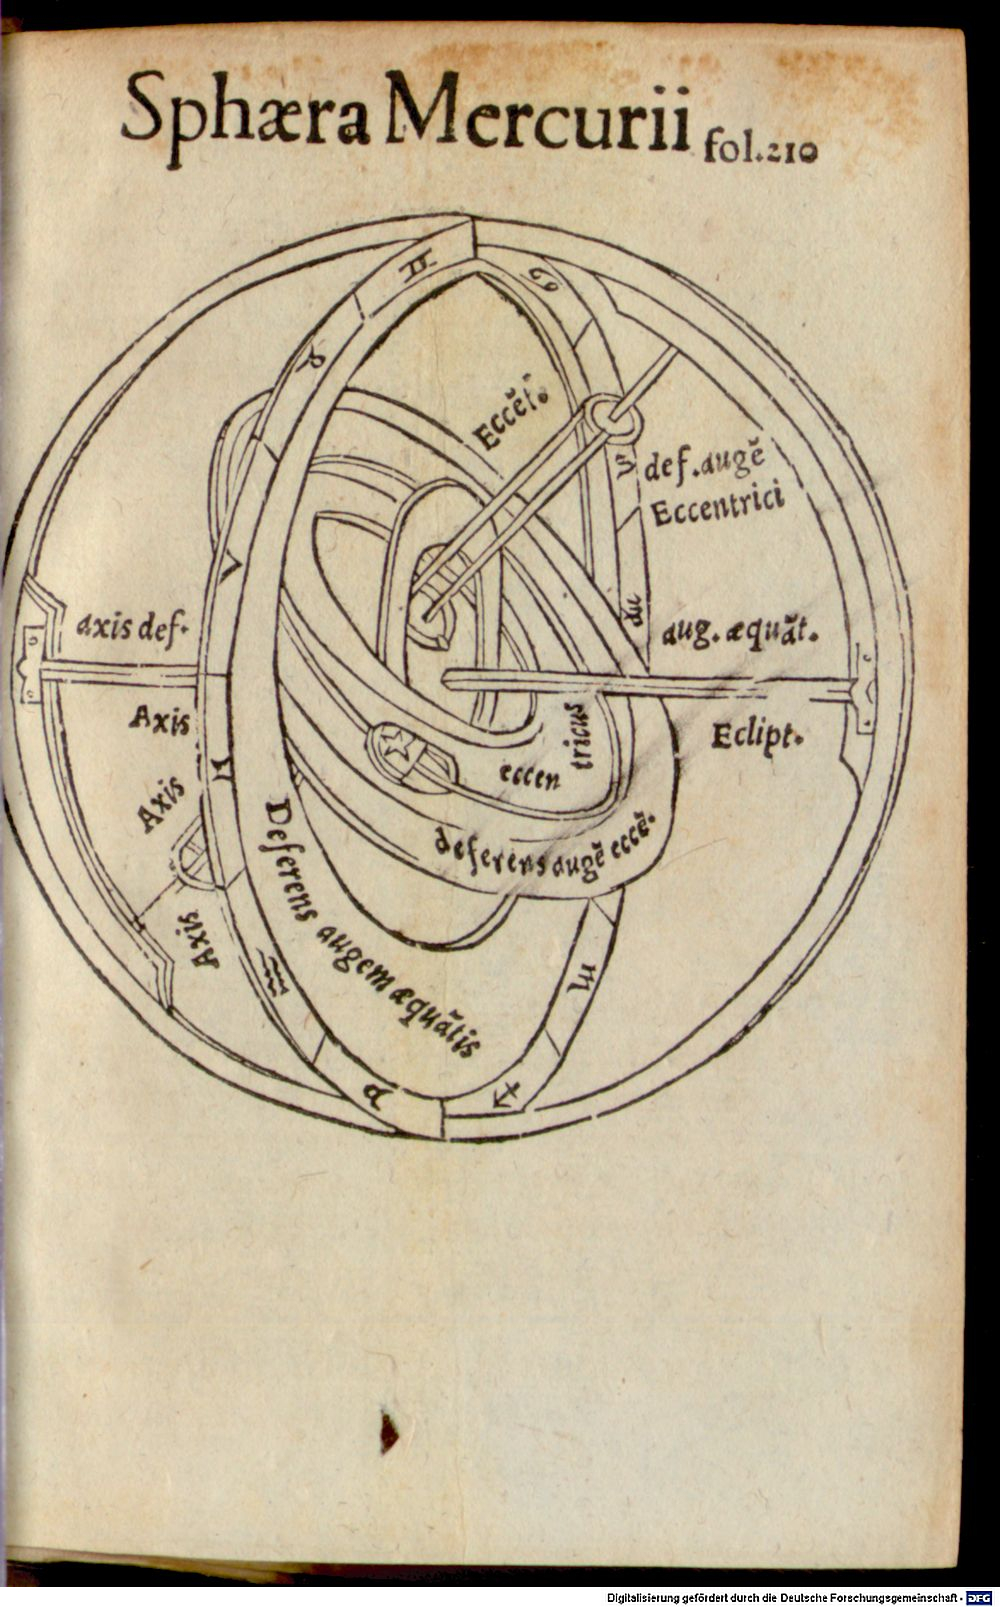 Sphæra Mercurii fol.210
Eccẽt.
def. augẽ
Eccentrici
axis def.
aug. æquãt.
Axis
Eclipt.
eccen
tricus
Axis
deferens augẽ eccẽ.
Deferens augem æquãtis
Axis
Digitalisierung gefördert durch die Deutsche Forschungsgemeinschaft - DFG